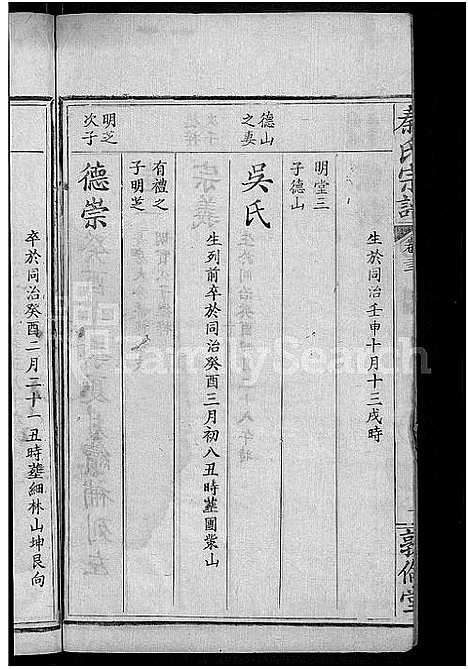 秦氏宗譜
卷三
生於同治壬申十月十三戌時
明堂三
子德山
德山
之妻
吳氏
生列前卒於同治癸酉三月初八丑時塟團業山
有禮之
子明芝
明芝
次子
德崇
卒於同治癸酉二月二十一丑時塟細林山坤艮向
FamilySearch